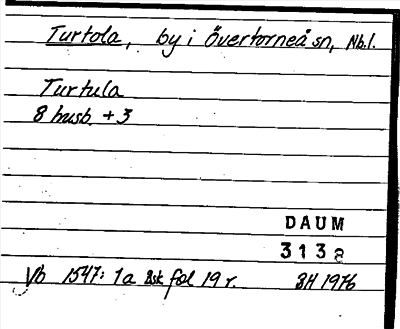 Turtola, by i Övertorneå sn, Nb.l.
Turtula
8 husb. + 3
DAUM
3132
Vb 1547: 1a Bsk fol 19 r. BH 1976